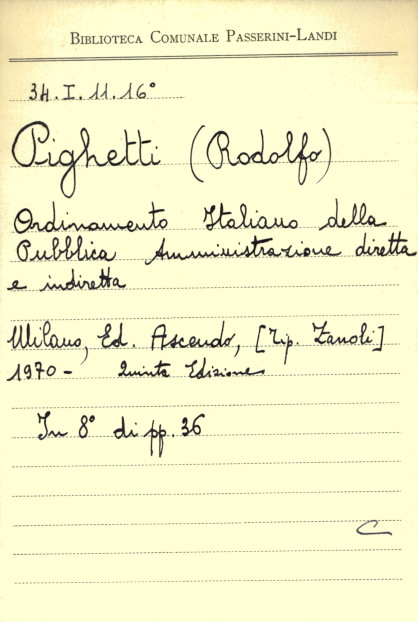 BIBLIOTECA COMUNALE PASSERINI-LANDI
34.I.11.16°
Pighetti (Rodolfo)
Ordinamento Italiano della
Pubblica Amministrazione diretta
e indiretta
Milano, Ed. Ascendo, [Tip. Zanoli]
1970 - Quinta Edizione
In 8° di pp. 36
C